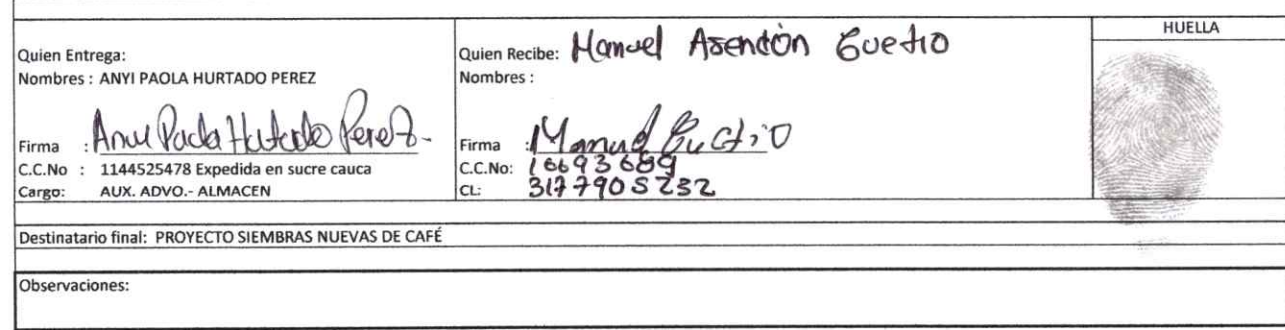 HUELLA
Quien Entrega:
Nombres : ANYI PAOLA HURTADO PEREZ
Firma : Anyi Paola Hurtado Perez
C.C.No : 1144525478 Expedida en sucre cauca
Cargo: AUX. ADVO.- ALMACEN
Quien Recibe: Manuel Asención Guetio
Nombres :
Firma : Manuel Guetio
C.C.No: 16693689
CL: 3177905232
Destinatario final: PROYECTO SIEMBRAS NUEVAS DE CAFÉ
Observaciones: